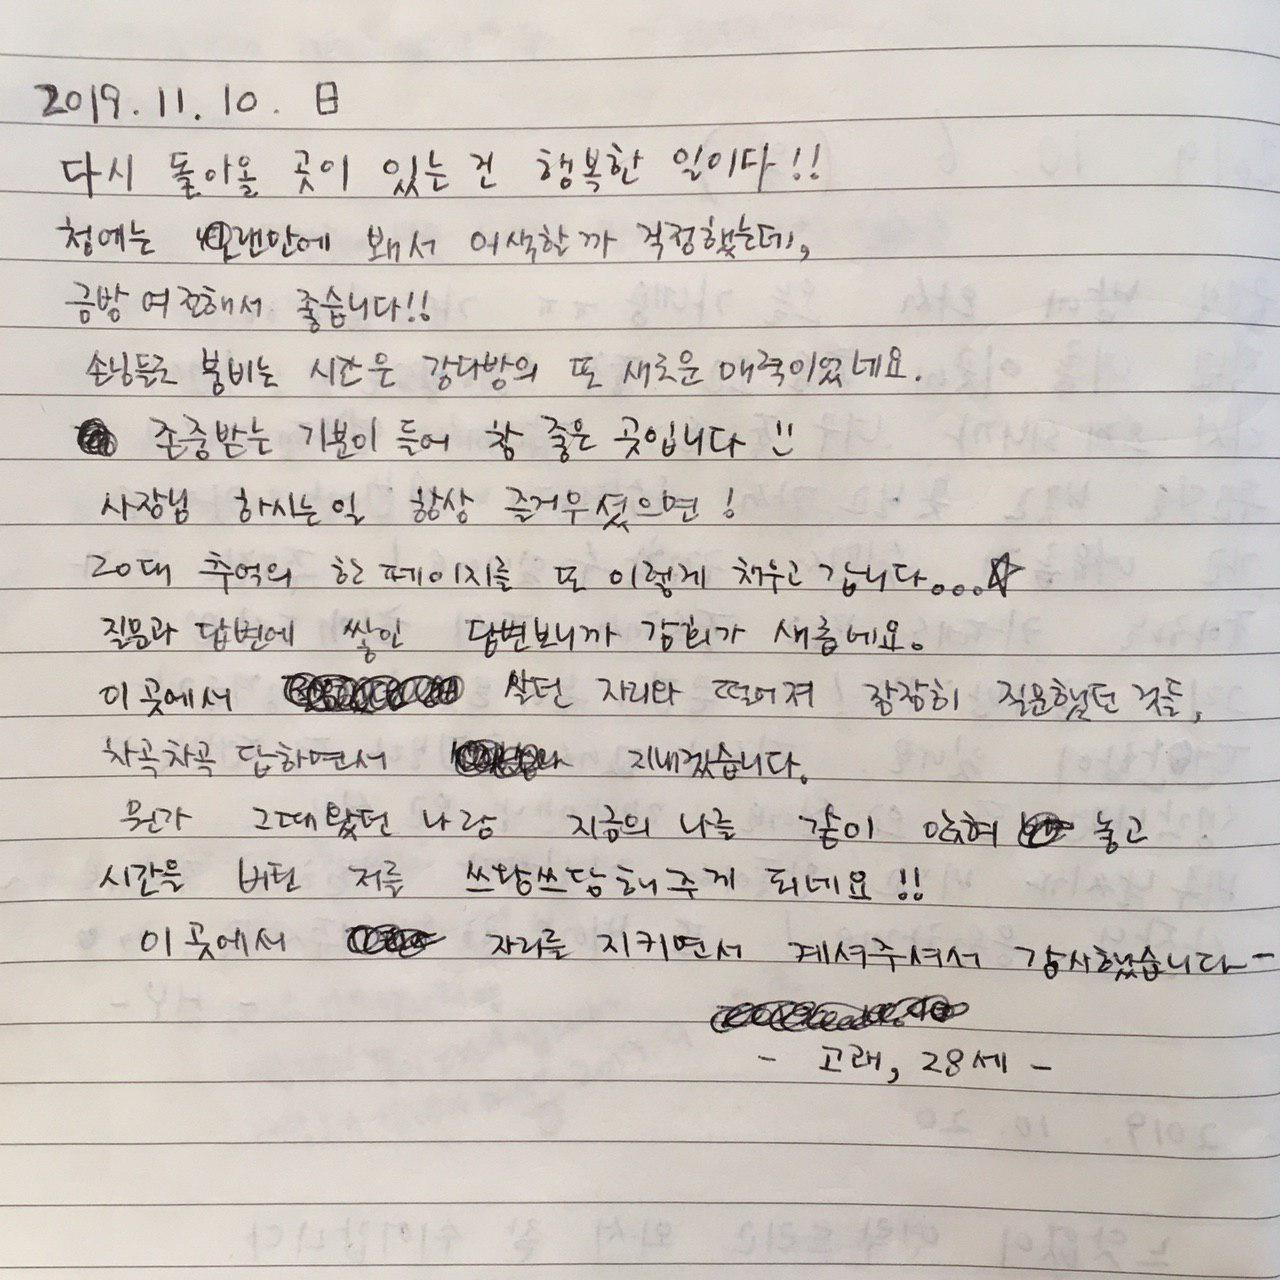 2019. 11. 10. 日
다시 돌아올 곳이 있는 건 행복한 일이다!!
첨에는 오랜만에 봬서 어색할까 걱정했는데,
금방 여전해서 좋습니다!!
손님들로 붐비는 시간은 강다방의 또 새로운 매력이었네요.
존중받는 기분이 들어 참 좋은 곳입니다!!
사장님 하시는일 항상 즐거우셨으면!
20대 추억의 한 페이지를 또 이렇게 채우고 갑니다...☆
질문과 답변에 쌓인 답변보니까 감회가 새롭네요.
이 곳에서 살던 자리와 떨어져 잠잠히 질문했던 것들,
차곡차곡 답하면서 지내겠습니다.
뭔가 그때 왔던 나랑 지금의 나를 같이 앉혀 놓고
시간을 버틴 저를 쓰담쓰담해주게 되네요!!
이 곳에서 자리를 지키면서 계셔주셔서 감사했습니다-
- 고래, 28세 -